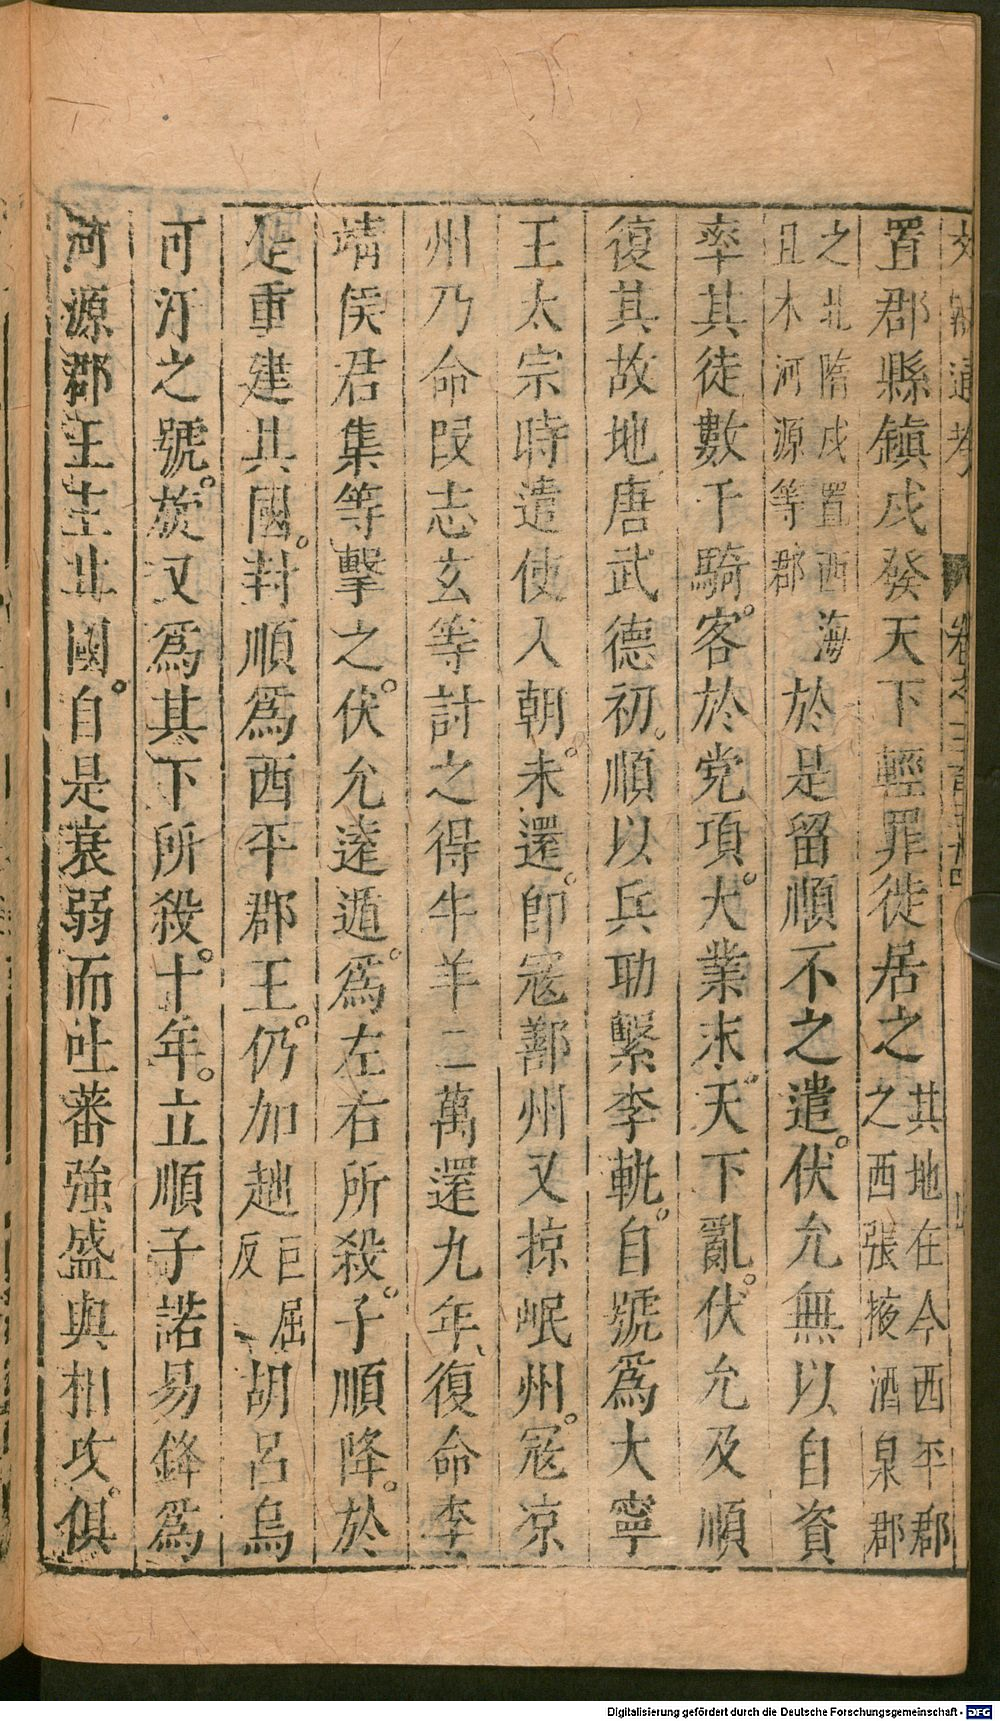 文獻通考 卷之三百三十四
置郡縣鎮戍發天下輕罪徙居之其地在今西平郡
之西張掖酒泉郡
之北隋戍置西海
且木河源等郡於是留順不之遣。伏允無以自資
率其徒數千騎。客於党項。大業末。天下亂。伏允及順
復其故地。唐武德初。順以兵功繫李軌。自號爲大寧
王太宗時遣使入朝。未還。即寇鄯州又掠岷州。寇凉
州乃命段志玄等討之得牛羊二萬還九年、復命李
靖侯君集等擊之。伏允遠遁。爲左右所殺。子順降。於
是重建其國。封順爲西平郡王。仍加趉巨屈反胡呂烏
可汗之號。旋又爲其下所殺。十年。立順子諾易鋒爲
河源郡王主其國。自是衰弱而吐蕃強盛與相攻。俱
Digitalisierung gefördert durch die Deutsche Forschungsgemeinschaft - DFG